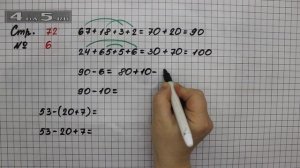 4 на 5.ру
Стр. 72
№ 6
67+18+3+2=70+20=90
24+65+5+6=30+70=100
90-6= 80+10-
90-10=
53-(20+7)=
53-20+7=